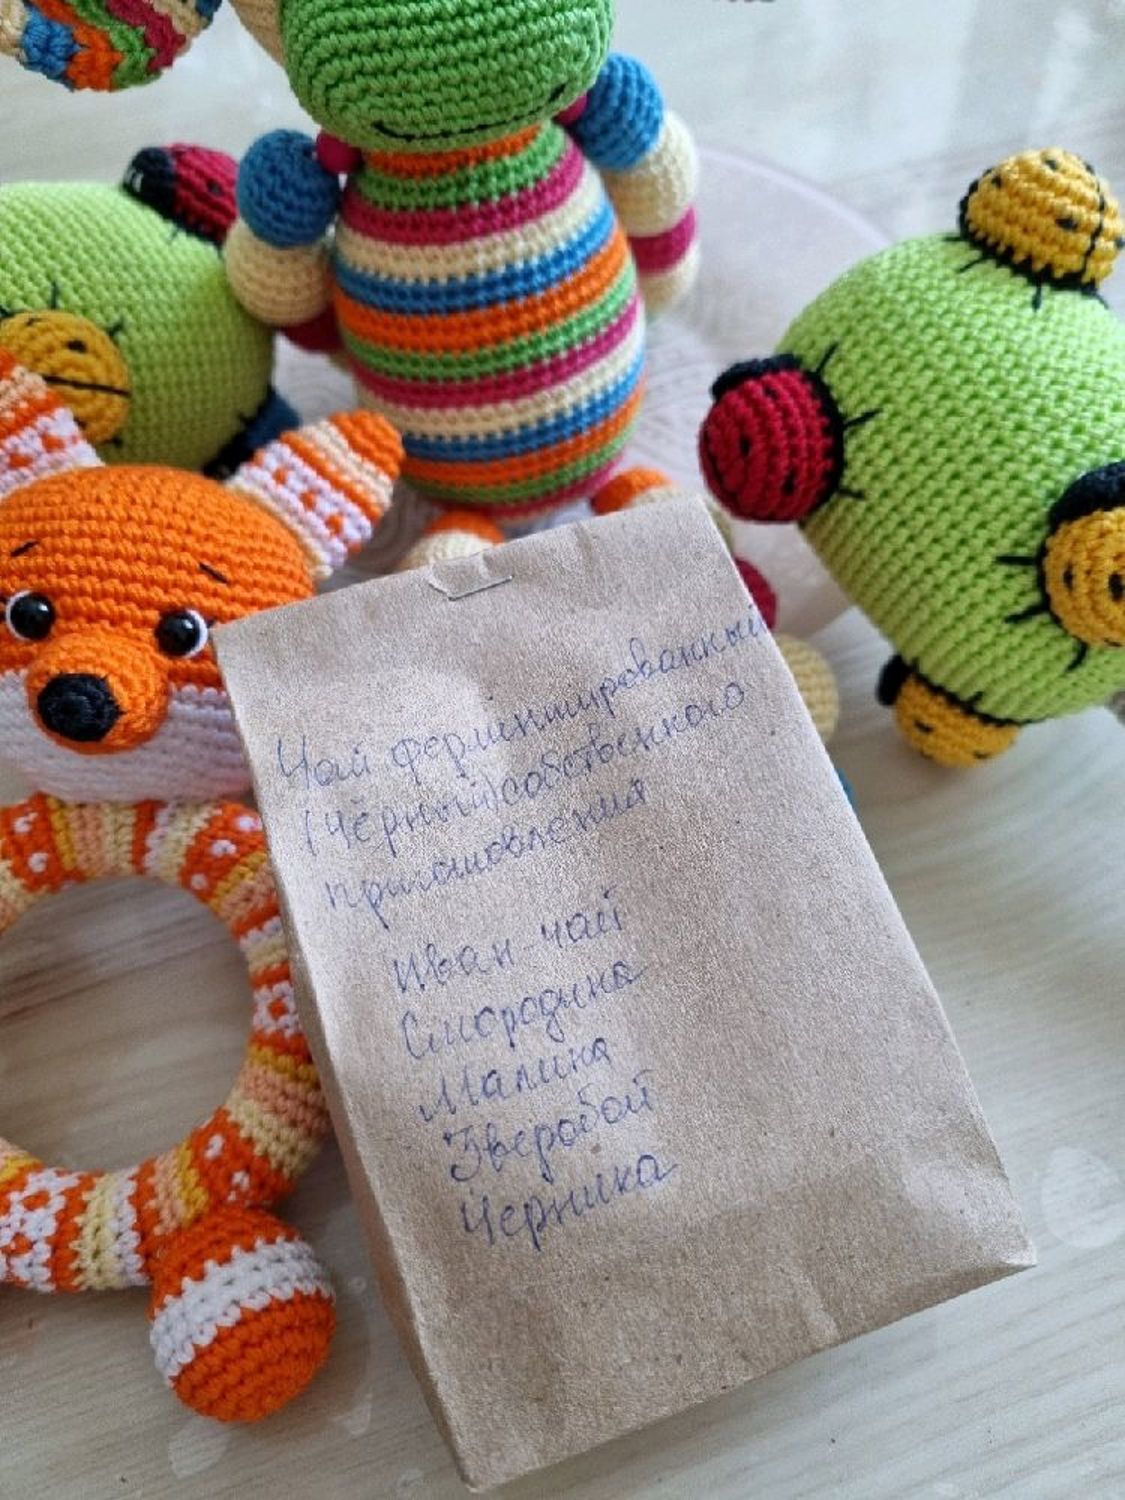 Чай ферментированный
(чёрный) собственного
приготовления
Иван-чай
Смородина
Малина
Зверобой
Черника